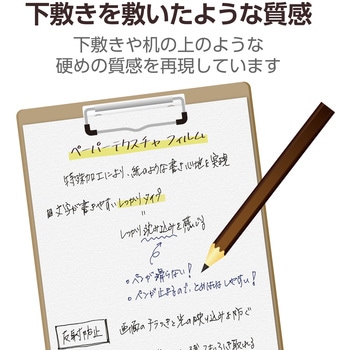 下敷きを敷いたような質感
下敷きや机の上のような
硬めの質感を再現しています
ペーパーテクスチャフィルム
特殊加工により、紙のような書き心地を実現
文字が書きやすいしっかりタイプ
しっかり沈み込みを感じる
・ペンが滑らない!
・ペンが止まるので、とめはねしやすい!
反射防止
画面のチラつきと光の映り込みを防ぐ